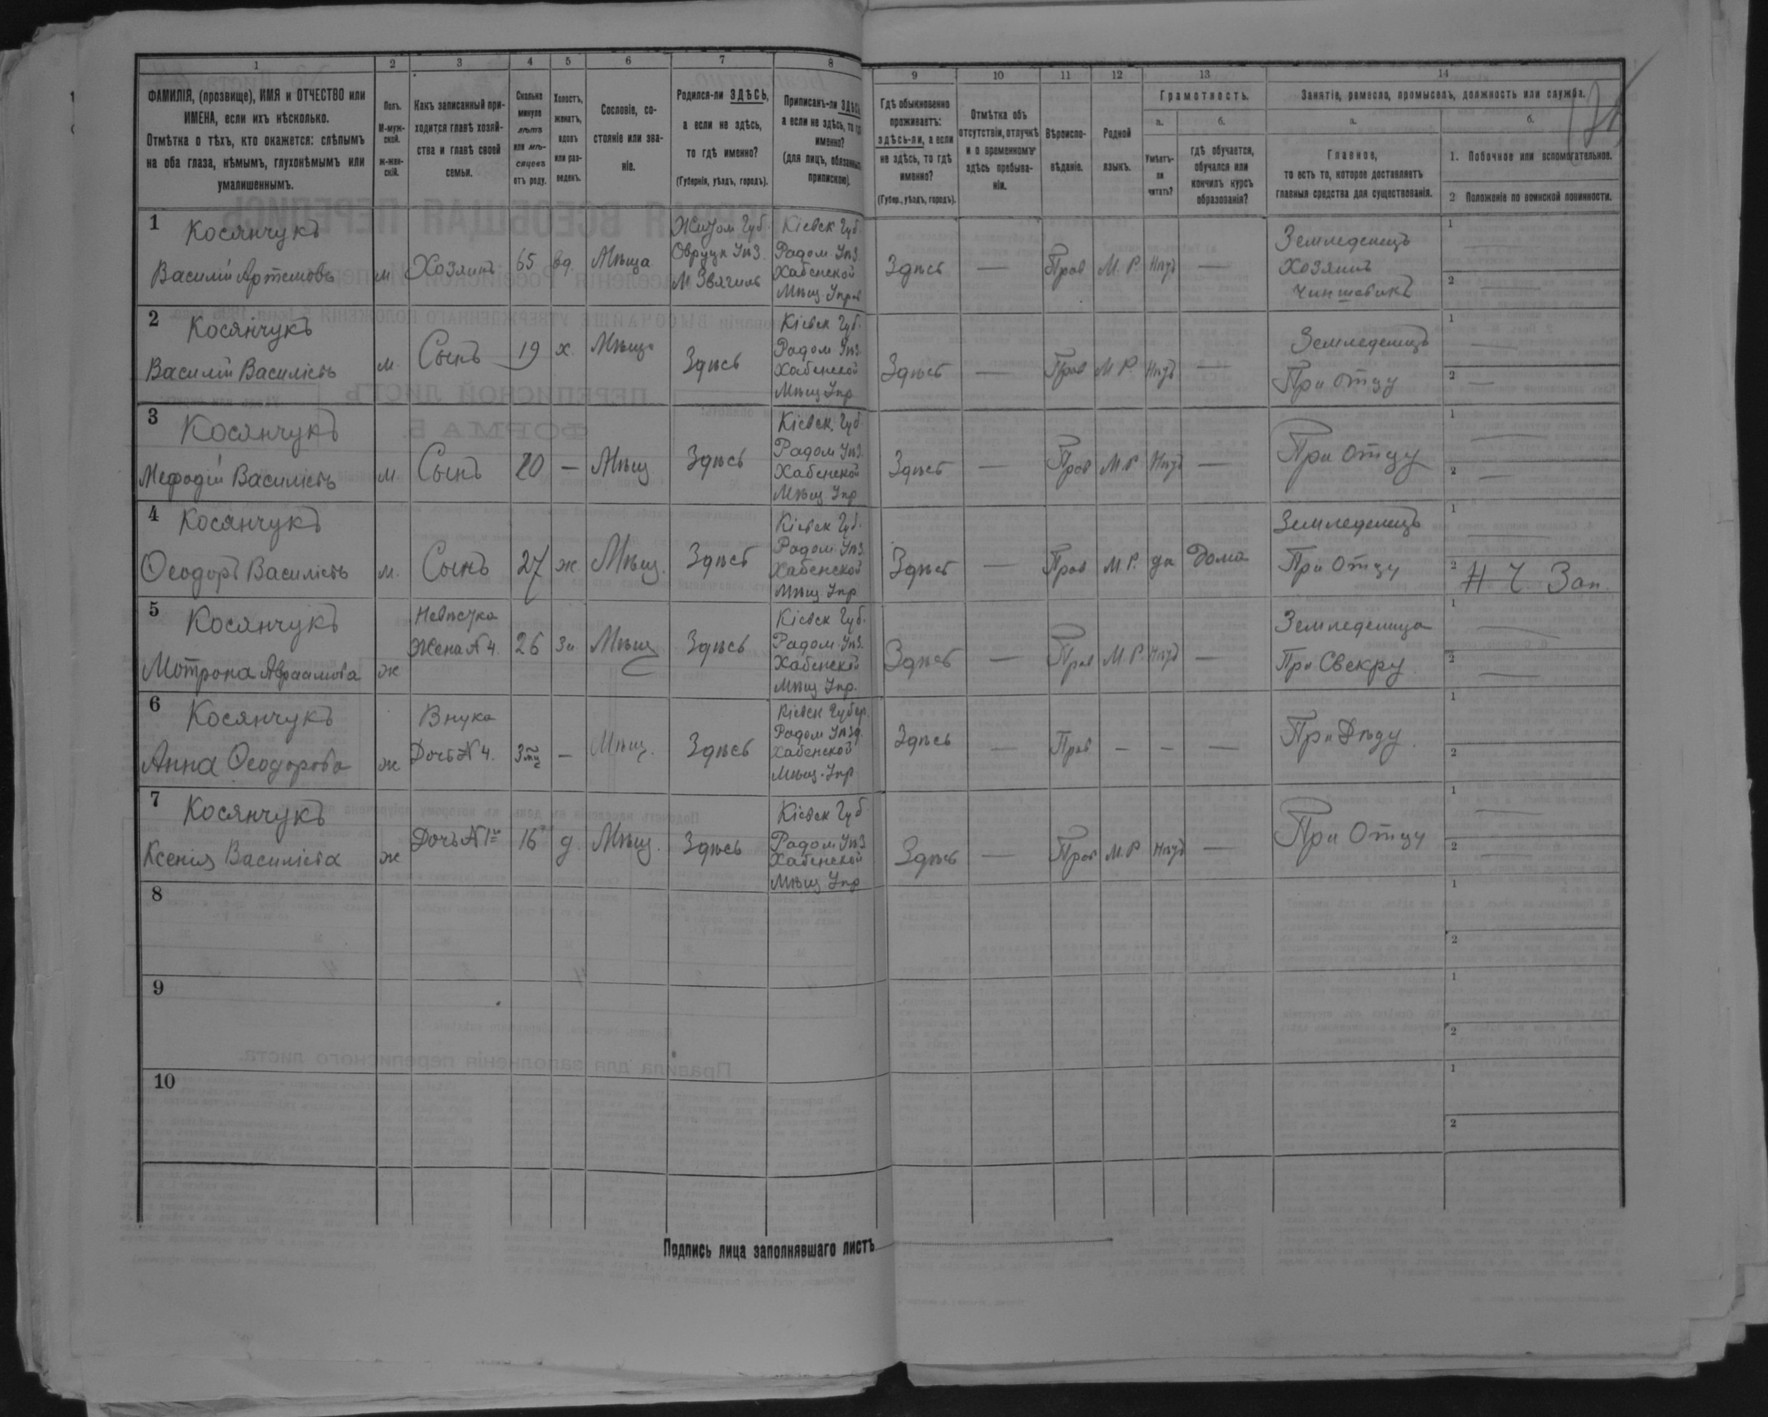 1 2 3 4 5 6 7 8 9 10 11 12 13 14
ФАМИЛІЯ, (прозвище), ИМЯ и ОТЧЕСТВО или
ИМЕНА, если ихъ нѣсколько.
Отмѣтка о тѣхъ, кто окажется: слѣпымъ
на оба глаза, нѣмымъ, глухонѣмымъ или
умалишеннымъ.
Полъ.
М-муж-
ской.
ж-жен-
скій.
Какъ записанный при-
ходится главѣ хозяй-
ства и главѣ своей
семьи.
Сколько
минуло
лѣтъ
или мѣ-
сяцевъ
отъ роду.
Холостъ,
женатъ,
вдовъ
или раз-
веденъ.
Сословіе, со-
стояніе или зва-
ніе.
Родился-ли ЗДѢСЬ,
а если не здѣсь,
то гдѣ именно?
(Губернія, уѣздъ, городъ).
Приписанъ-ли ЗДѢСЬ,
а если не здѣсь, то гдѣ
именно?
(для лицъ, обязанныхъ
припискою).
Гдѣ обыкновенно
проживаетъ:
здѣсь-ли, а если
не здѣсь, то гдѣ
именно?
(Губер., уѣздъ, городъ).
Отмѣтка объ
отсутствіи, отлучкѣ
и о временномъ
здѣсь пребыва-
ніи.
Вѣроиспо-
вѣданіе.
Родной
языкъ.
Грамотность.
а.
Умѣетъ-
ли
читать?
б.
гдѣ обучается,
обучался или
кончилъ курсъ
образованія?
Занятіе, ремесло, промыселъ, должность или служба.
а.
Главное,
то есть то, которое доставляетъ
главныя средства для существованія.
б.
1. Побочное или вспомогательное.
2 Положеніе по воинской повинности.
1 Косянчукъ
Василій Артемовъ м Хозяинъ 65 вд. Мѣща
Житом Губ.
Овруцк Уѣз.
М Звягиль
Кіевск Губ
Радом Уѣз
Хабенской
Мѣщ. Управ
Здѣсь — Прав М. Р. Нѣтъ —
Земледелецъ
Хозяинъ
Чиншевикъ
1
2
2 Косянчукъ
Василій Василіевъ м Сынъ 19 х. Мѣщ. Здѣсь
Кіевск Губ.
Радом Уѣз.
Хабенской
Мѣщ Упр
Здѣсь — Прав М Р. Нѣтъ —
Земледелецъ
При отцу
1
2
3 Косянчукъ
Мефодій Василіевъ м. Сынъ 20 — Мѣщ Здѣсь
Кіевск. Губ.
Радом Уѣз.
Хабенской
Мѣщ Упр
Здѣсь — Прав М. Р. Нѣтъ —
При отцу
1
2
4 Косянчукъ
Ѳеодоръ Василіевъ м. Сынъ 27 ж Мѣщ. Здѣсь
Кіевск Губ.
Радом. Уѣз.
Хабенской
Мѣщ. Упр
Здѣсь — Прав М. Р. да Дома
Земледелецъ
При отцу
1
2 Н Ч Зап.
5 Косянчукъ
Мотрона Авраамова ж
Невѣстка
Жена № 4. 26 За Мѣщ Здѣсь
Кіевск Губ.
Радом Уѣз.
Хабенской
Мѣщ Упр.
Здѣсь — Прав М Р. Нѣтъ —
Земледелица
При Свекру.
1
2
6 Косянчукъ
Анна Ѳеодорова ж
Внука
Дочь № 4. 3 мц — Мѣщ. Здѣсь
Кіевск Губер.
Радом Уѣзд.
Хабенской
Мѣщ. Упр
Здѣсь — Прав — — —
При Дѣду.
1
2
7 Косянчукъ
Ксенія Василіева ж Дочь № 1го 16 д. Мѣщ. Здѣсь
Кіевск Губ
Радом Уѣз
Хабенской
Мѣщ Упр
Здѣсь — Прав М. Р Нѣтъ —
При Отцу
1
2
8
1
2
9
1
2
10
1
2
Подпись лица заполнявшаго листъ